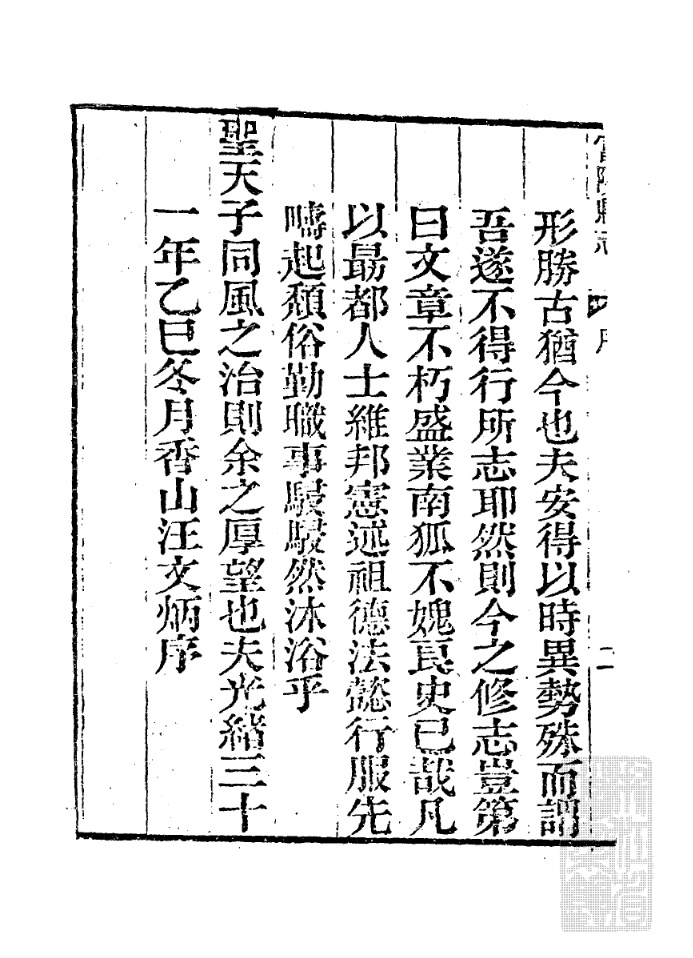 形勝古猶今也夫安得以時異勢殊而謂
吾遂不得行所志耶然則今之修志豈第
曰文章不朽盛業南狐不媿良史已哉凡
以最都人士維邦憲述祖德法懿行服先
疇起頹俗勤職事駸駸然沐浴乎
聖天子同風之治則余之厚望也夫光緒三十
一年乙巳冬月香山汪文炳序